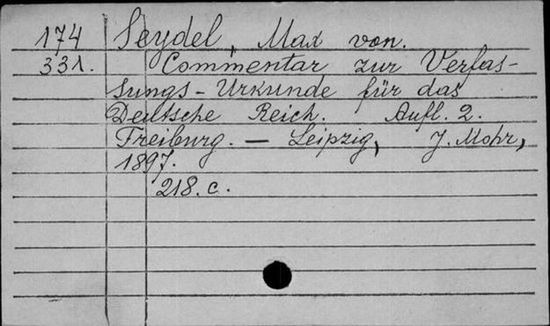 174 Seydel, Max von.
331. Commentar zur Verfas-
sungs-Urkunde für das
Deutsche Reich. Aufl. 2.
Freiburg. — Leipzig, J. Mohr,
1897.
218.c.